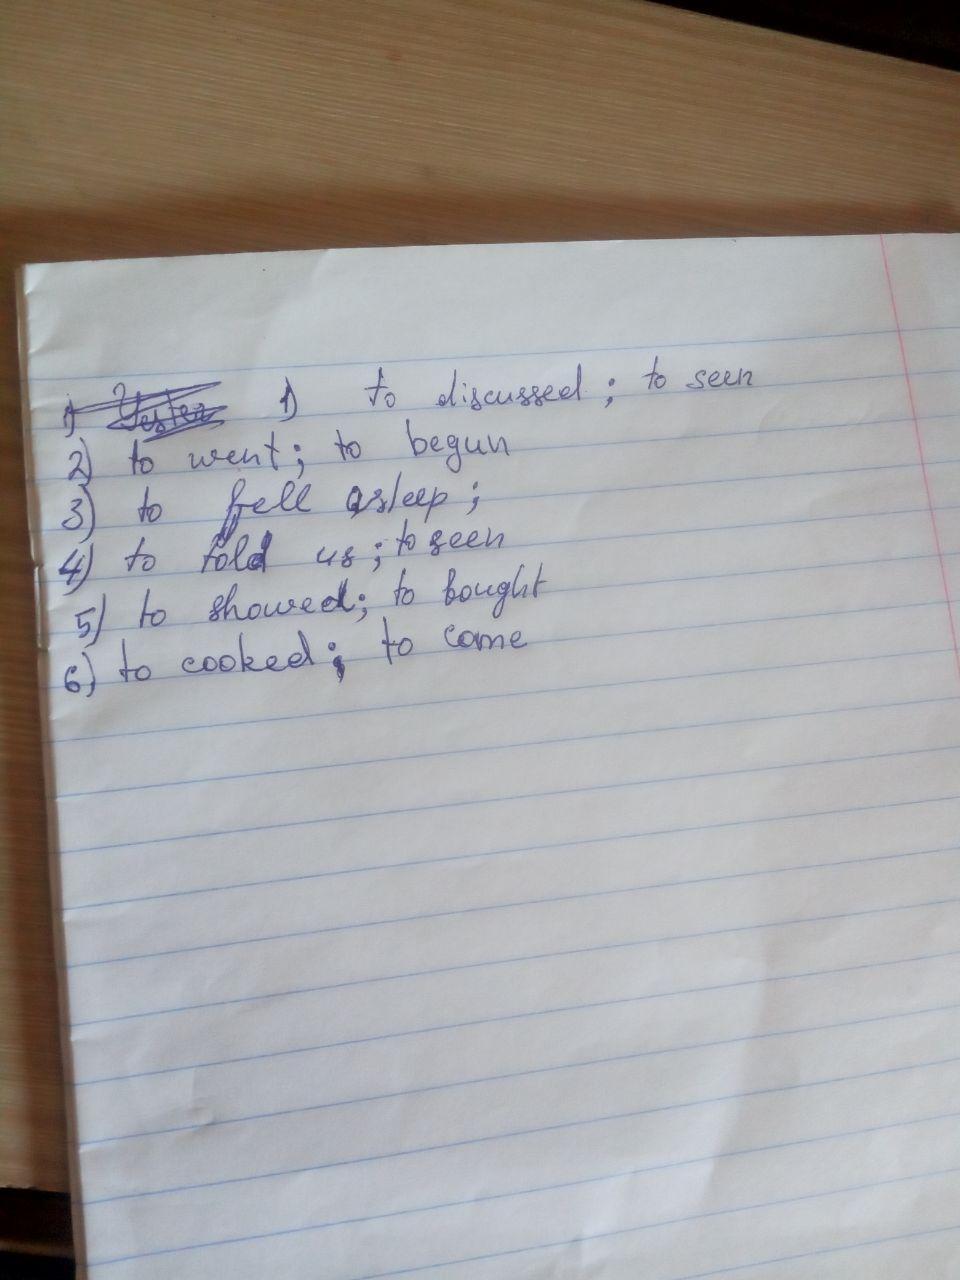 1) 1) to discussed ; to seen
2) to went; to begun
3) to fell asleep ;
4) to told us ; to seen
5) to showed; to bought
6) to cooked ; to come